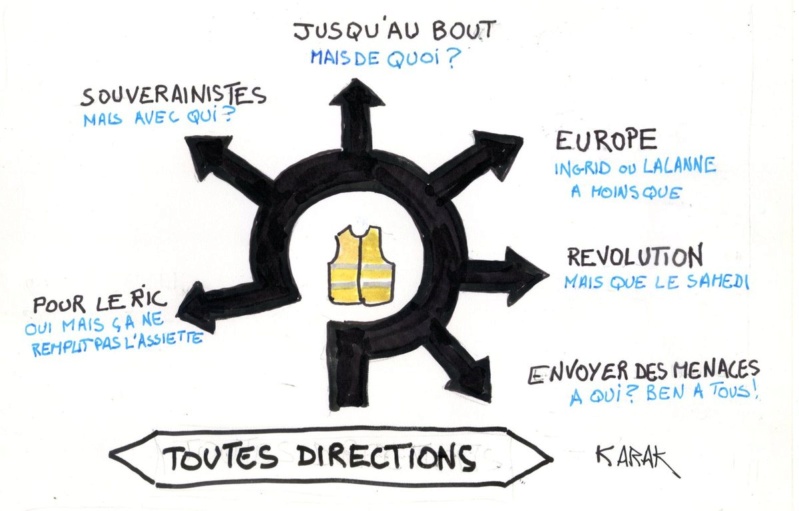 JUSQU'AU BOUT
MAIS DE QUOI ?
SOUVERAINISTES
MAIS AVEC QUI ?
EUROPE
INGRID OU LALANNE
A MOINS QUE
REVOLUTION
MAIS QUE LE SAMEDI
POUR LE RIC
OUI MAIS ÇA NE
REMPLIT PAS L'ASSIETTE
ENVOYER DES MENACES
A QUI ? BEN A TOUS !
TOUTES DIRECTIONS
KARAK